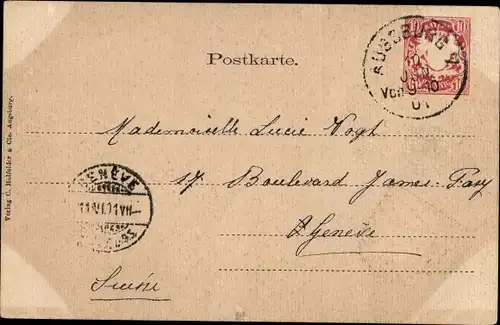 Postkarte.
10 10
AUGSBURG 2
10
JUN.
Vor. 9-10
01
Mademoiselle Lucie Vogt
17 Boulevard James Fazy
à Genève
Suisse
GENÈVE
11.VI.01 VII
Verlag C. Rehfelder & Cie. Augsburg.